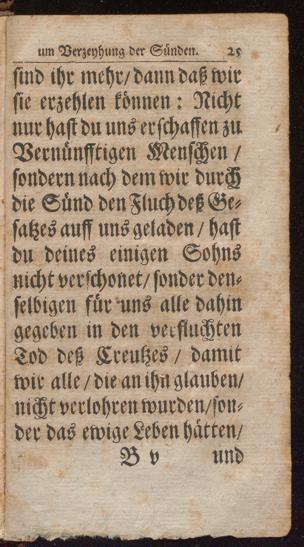 um Verzeyhung der Sünden. 25
sind ihr mehr/ dann daß wir
sie erzehlen können: Nicht
nur hast du uns erschaffen zu
Vernünfftigen Menschen /
sondern nach dem wir durch
die Sünd den Fluch deß Ge-
satzes auff uns geladen/ hast
du deines einigen Sohns
nicht verschonet/ sonder den-
selbigen für uns alle dahin
gegeben in den verfluchten
Tod deß Creutzes / damit
wir alle / die an ihn glauben/
nicht verlohren wurden/ son-
der das ewige Leben hätten/
B v und